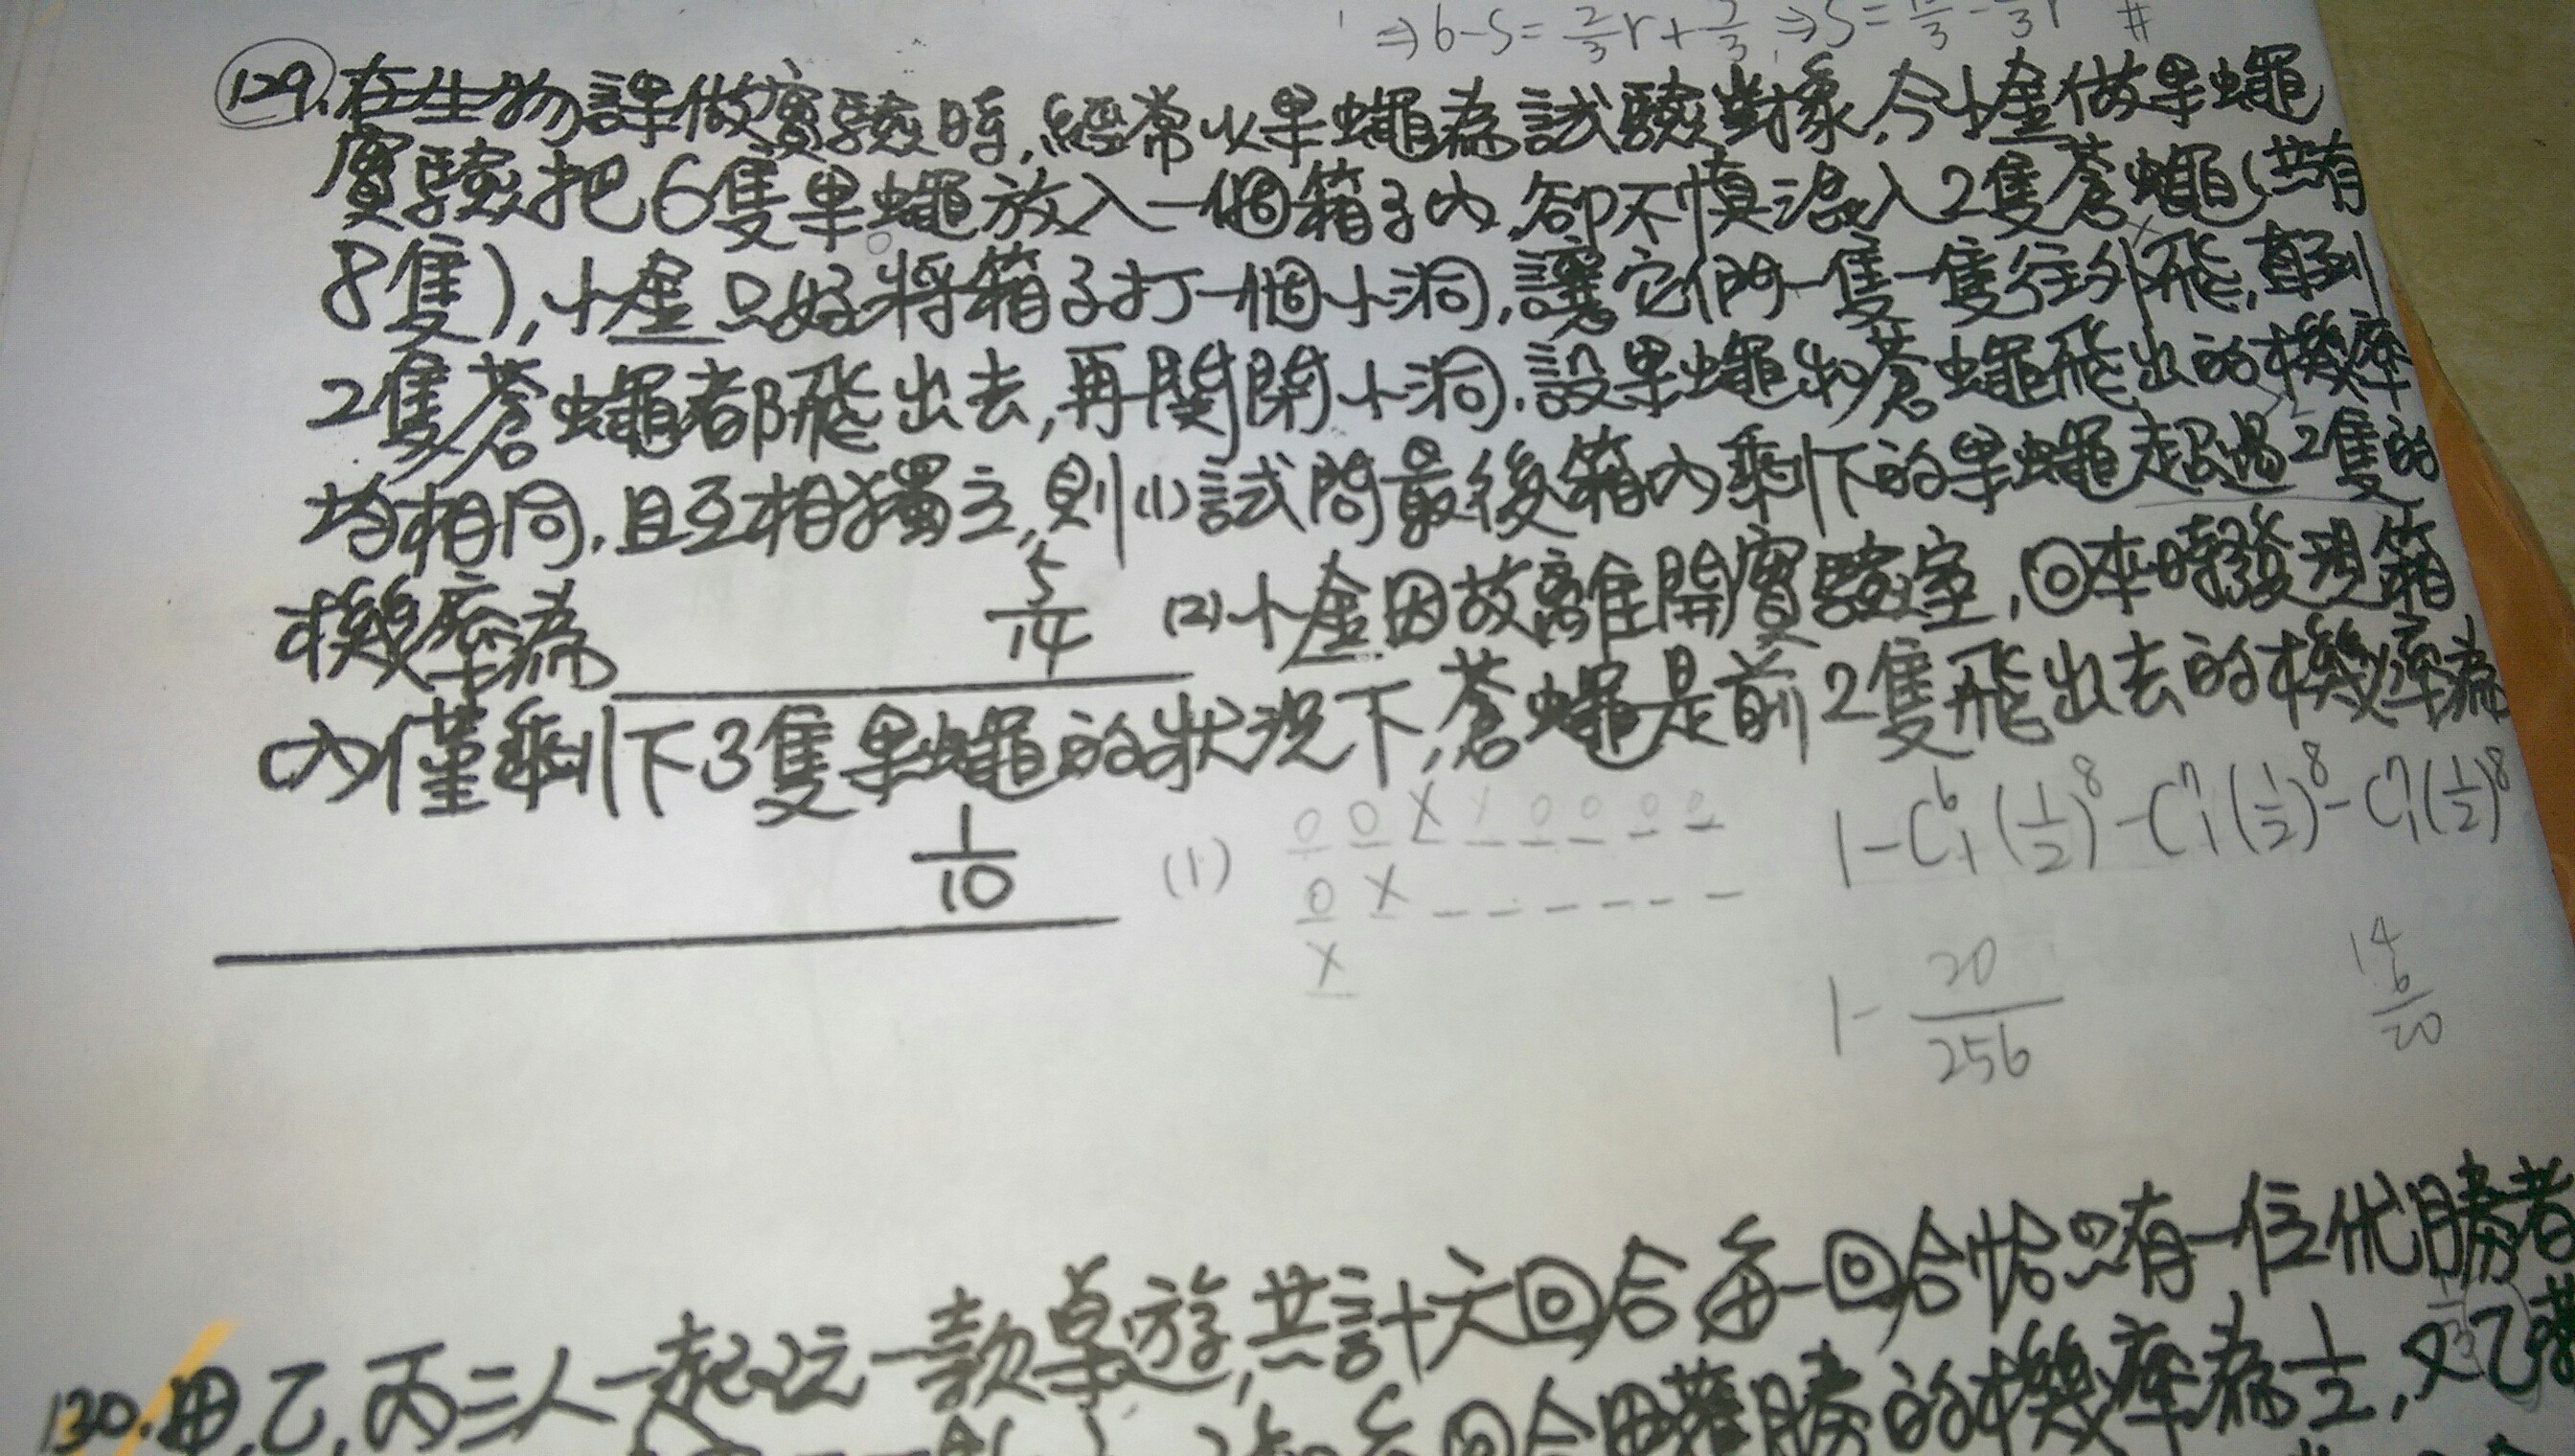 ⇒6-S=2/3r+2/3,⇒S=
129.在生物課做實驗時,經常以果蠅為試驗對象,今小金做果蠅
實驗把6隻果蠅放入一個箱子內,卻不慎混入2隻蒼蠅(共有
8隻),小金只好將箱子打一個小洞,讓它們一隻一隻往外飛,直到
2隻蒼蠅都飛出去,再關閉小洞.設果蠅和蒼蠅飛出的機率
均相同,且互相獨立,則(1)試問最後箱內剩下的果蠅超過2隻的
機率為 5/14 (2)小金因故離開實驗室,回來時發現箱
內僅剩下3隻果蠅的狀況下,蒼蠅是前2隻飛出去的機率為
1/10
(1) 0 0 X X 0 0 0 0
0 X
X
1-C⁶₁(1/2)⁸-C⁷₁(1/2)⁸-C⁷₁(1/2)⁸
1-20/256
14
6/20
130.甲,乙,丙三人一起玩一款桌遊,共計六回合,每一回合恰只有一位優勝者
回合甲獲勝的機率為1/2,又乙